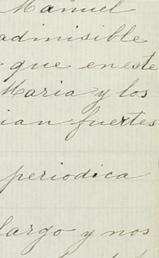 Manuel
admisible
que en este
Maria y los
ian fuertes
periodica
largo y nos